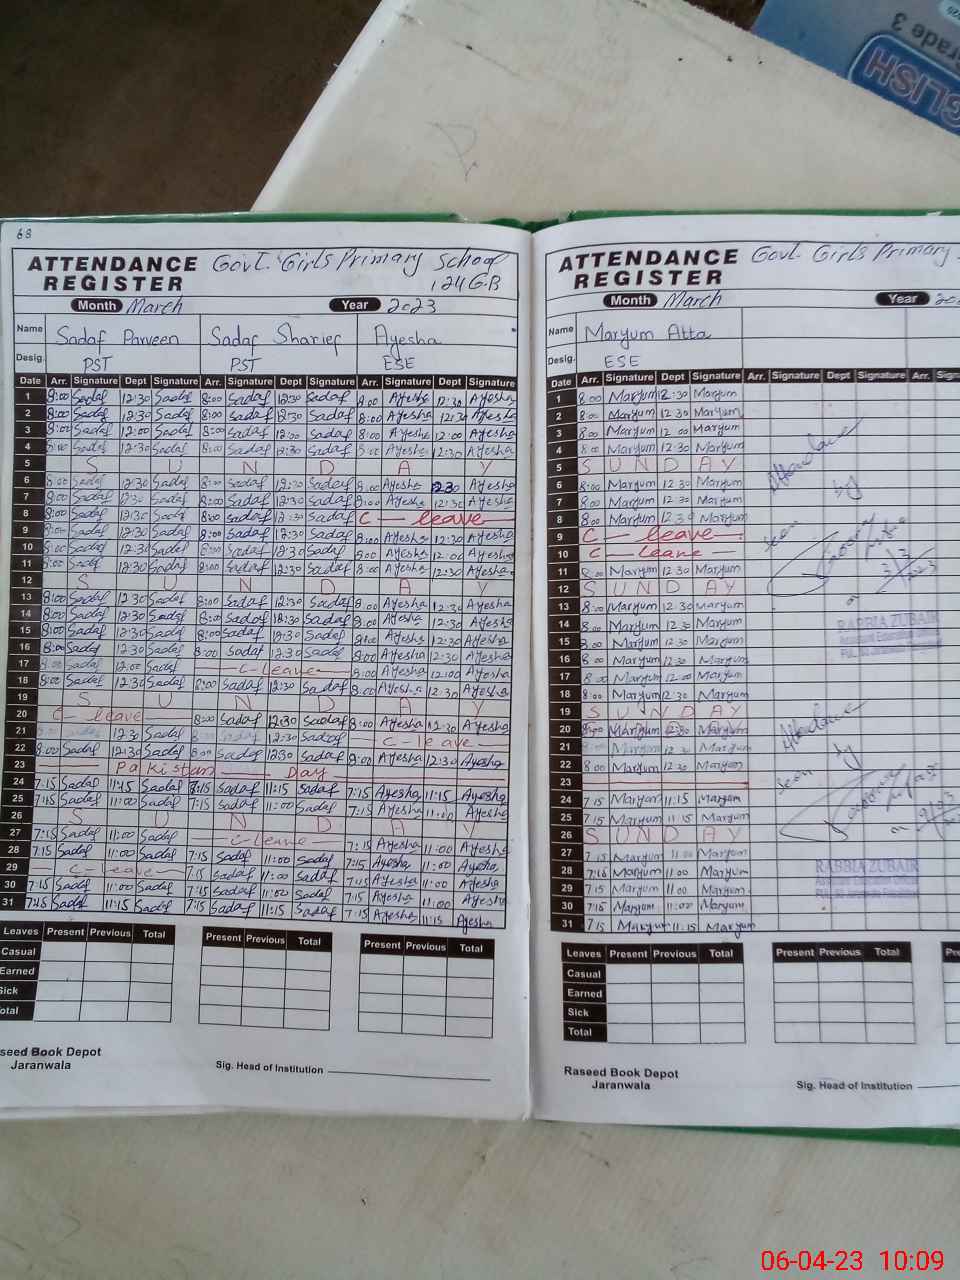 Grade 3
ENGLISH
68
ATTENDANCE REGISTER
Govt. Girls Primary School
124 G.B
Month March Year 2023
Name Sadaf Parveen Sadaf Sharief Ayesha
Desig. PST PST ESE
Date Arr. Signature Dept Signature Arr. Signature Dept Signature Arr. Signature Dept Signature
1 8:00 Sadaf 12:30 Sadaf 8:00 Sadaf 12:30 Sadaf 8:00 Ayesha 12:30 Ayesha
2 8:00 Sadaf 12:30 Sadaf 8:00 Sadaf 12:30 Sadaf 8:00 Ayesha 12:30 Ayesha
3 8:00 Sadaf 12:00 Sadaf 8:00 Sadaf 12:00 Sadaf 8:00 Ayesha 12:00 Ayesha
4 8:00 Sadaf 12:30 Sadaf 8:00 Sadaf 12:30 Sadaf 8:00 Ayesha 12:30 Ayesha
5 S U N D A Y
6 8:00 Sadaf 12:30 Sadaf 8:00 Sadaf 12:30 Sadaf 8:00 Ayesha 12:30 Ayesha
7 8:00 Sadaf 12:30 Sadaf 8:00 Sadaf 12:30 Sadaf 8:00 Ayesha 12:30 Ayesha
8 8:00 Sadaf 12:30 Sadaf 8:00 Sadaf 12:30 Sadaf C - leave
9 8:00 Sadaf 12:30 Sadaf 8:00 Sadaf 12:30 Sadaf 8:00 Ayesha 12:30 Ayesha
10 8:00 Sadaf 12:30 Sadaf 8:00 Sadaf 12:30 Sadaf 8:00 Ayesha 12:00 Ayesha
11 8:00 Sadaf 12:30 Sadaf 8:00 Sadaf 12:30 Sadaf 8:00 Ayesha 12:30 Ayesha
12 S U N D A Y
13 8:00 Sadaf 12:30 Sadaf 8:00 Sadaf 12:30 Sadaf 8:00 Ayesha 12:30 Ayesha
14 8:00 Sadaf 12:30 Sadaf 8:00 Sadaf 12:30 Sadaf 8:00 Ayesha 12:30 Ayesha
15 8:00 Sadaf 12:30 Sadaf 8:00 Sadaf 12:30 Sadaf 8:00 Ayesha 12:30 Ayesha
16 8:00 Sadaf 12:30 Sadaf 8:00 Sadaf 12:30 Sadaf 8:00 Ayesha 12:30 Ayesha
17 8:00 Sadaf 12:00 Sadaf C-leave 8:00 Ayesha 12:00 Ayesha
18 8:00 Sadaf 12:30 Sadaf 8:00 Sadaf 12:30 Sadaf 8:00 Ayesha 12:30 Ayesha
19 S U N D A Y
20 C - leave 8:00 Sadaf 12:30 Sadaf 8:00 Ayesha 12:30 Ayesha
21 Sadaf 12:30 Sadaf Sadaf 12:30 Sadaf C-leave
22 8:00 Sadaf 12:30 Sadaf 8:00 Sadaf 12:30 Sadaf 8:00 Ayesha 12:30 Ayesha
23 Pakistan Day
24 7:15 Sadaf 11:15 Sadaf 7:15 Sadaf 11:15 Sadaf 7:15 Ayesha 11:15 Ayesha
25 7:15 Sadaf 11:00 Sadaf 7:15 Sadaf 11:00 Sadaf 7:15 Ayesha 11:00 Ayesha
26 S U N D A Y
27 7:15 Sadaf 11:00 Sadaf C-leave 7:15 Ayesha 11:00 Ayesha
28 7:15 Sadaf 11:00 Sadaf 7:15 Sadaf 11:00 Sadaf 7:15 Ayesha 11:00 Ayesha
29 C-leave 7:15 Sadaf 11:00 Sadaf 7:15 Ayesha 11:00 Ayesha
30 7:15 Sadaf 11:00 Sadaf 7:15 Sadaf 11:00 Sadaf 7:15 Ayesha 11:00 Ayesha
31 7:15 Sadaf 11:15 Sadaf 7:15 Sadaf 11:15 Sadaf 7:15 Ayesha 11:15 Ayesha
Leaves Present Previous Total Present Previous Total Present Previous Total
Casual
Earned
Sick
Total
Raseed Book Depot
Jaranwala
Sig. Head of Institution
ATTENDANCE REGISTER
Govt. Girls Primary
Month March Year
Name Maryum Atta
Desig. ESE
Date Arr. Signature Dept Signature Arr. Signature Dept Signature Arr.
1 8:00 Maryum 12:30 Maryum
2 8:00 Maryum 12:30 Maryum
3 8:00 Maryum 12:00 Maryum
4 8:00 Maryum 12:30 Maryum
5 S U N D A Y
6 8:00 Maryum 12:30 Maryum
7 8:00 Maryum 12:30 Maryum
8 8:00 Maryum 12:30 Maryum
9 C - leave
10 C - leave
11 8:00 Maryum 12:30 Maryum
12 S U N D A Y
13 8:00 Maryum 12:30 Maryum
14 8:00 Maryum 12:30 Maryum
15 8:00 Maryum 12:30 Maryum
16 8:00 Maryum 12:30 Maryum
17 8:00 Maryum 12:00 Maryum
18 8:00 Maryum 12:30 Maryum
19 S U N D A Y
20 8:00 Maryum 12:30 Maryum
21 Maryum 12:30 Maryum
22 8:00 Maryum 12:30 Maryum
23
24 7:15 Maryum 11:15 Maryum
25 7:15 Maryum 11:15 Maryum
26 S U N D A Y
27 7:15 Maryum 11:00 Maryum
28 7:15 Maryum 11:00 Maryum
29 7:15 Maryum 11:00 Maryum
30 7:15 Maryum 11:00 Maryum
31 7:15 Maryum 11:15 Maryum
Attendance
seen by
RABBIA ZUBAIR
Attendance
seen by
RABBIA ZUBAIR
Leaves Present Previous Total Present Previous Total
Casual
Earned
Sick
Total
Raseed Book Depot
Jaranwala
Sig. Head of Institution
06-04-23 10:09